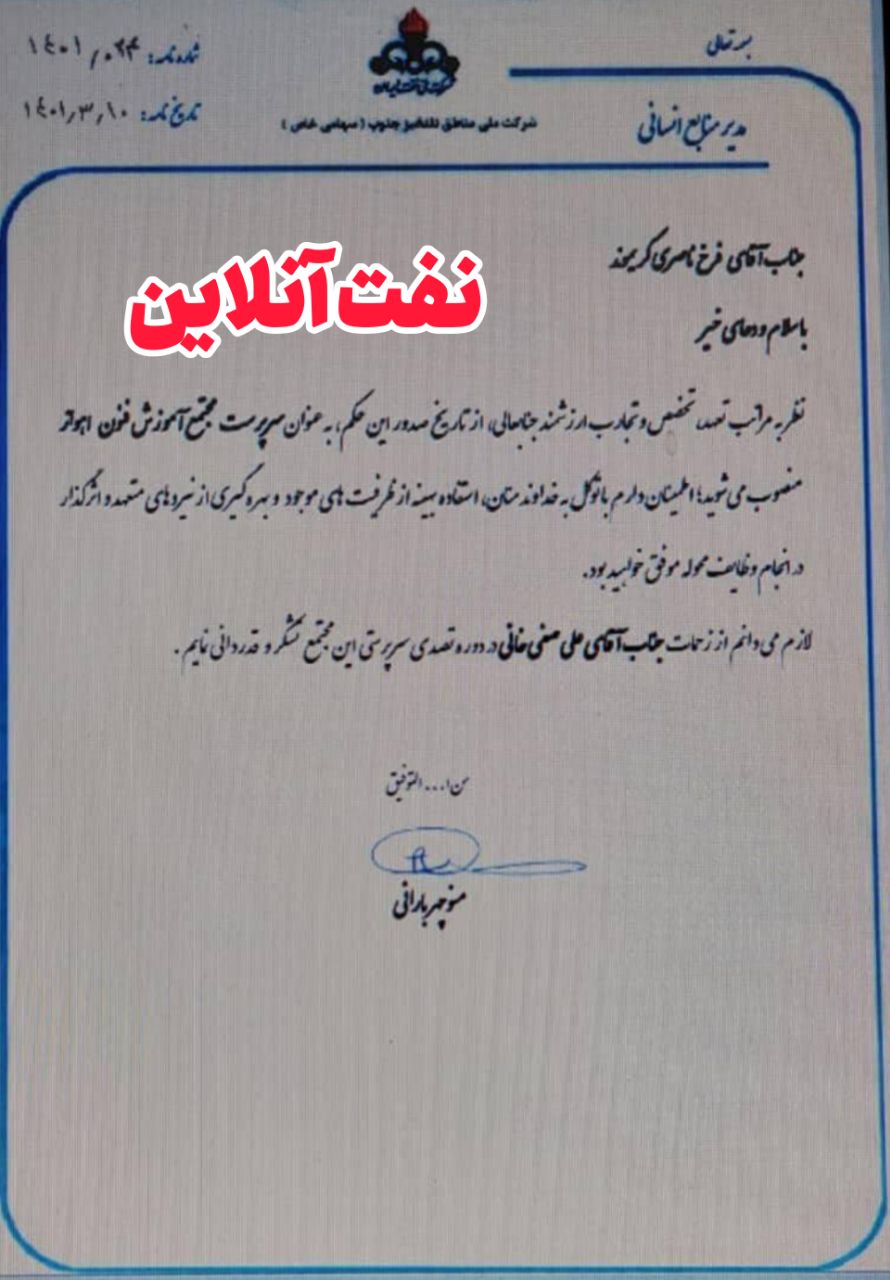 بسمه تعالی
مدیر منابع انسانی
شرکت ملی نفت ایران
شرکت ملی مناطق نفتخیز جنوب (سهامی خاص)
شماره نامه: ۱٤۰۱/۰۲۴
تاریخ نامه: ۱٤۰۱٫۳٫۱۰
نفت‌آنلاین
جناب آقای فرخ ناصری کریموند
با سلام و دعای خیر
نظر به مراتب تعهد، تخصص و تجارب ارزشمند جنابعالی، از تاریخ صدور این حکم، به عنوان سرپرست مجتمع آموزش فنون اهواز
منصوب می شوید؛ اطمینان دارم با توکل به خداوند منان، استفاده بهینه از ظرفیت های موجود و بهره گیری از نیروهای متعهد و اثرگذار
در انجام وظایف محوله موفق خواهید بود.
لازم می دانم از زحمات جناب آقای علی صفی خانی در دوره تصدی سرپرستی این مجتمع تشکر و قدردانی نمایم.
من ا... التوفیق
منوچهر بارانی